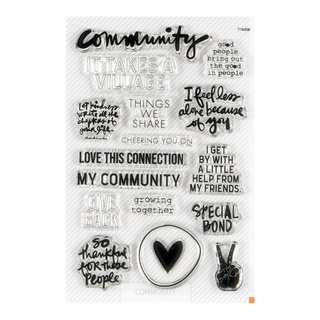 716208
community
good
people
bring out
the good
in people
IT TAKES A
VILLAGE
let kindness
write all the
chapters of
your life.
THINGS
WE
SHARE
I feel less
alone because
of you
CHEERING YOU ON
LOVE THIS CONNECTION
MY COMMUNITY
I GET
BY WITH
A LITTLE
HELP FROM
MY FRIENDS.
GIVE
BACK
growing
together
SPECIAL
BOND
So
thankful
FOR these
People
COMMUNITY